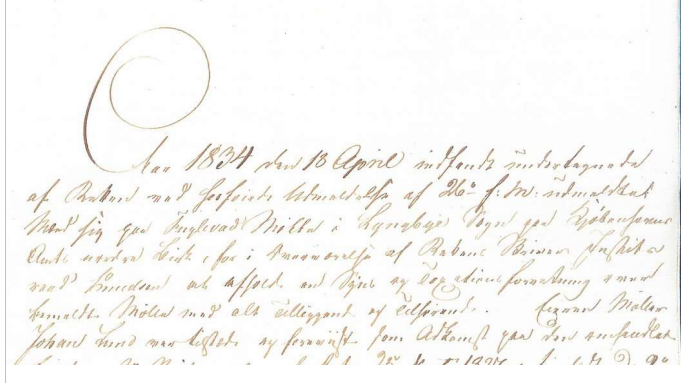 Aar 1834 den 13 April indfandt undertegnede
af Retten ved hosføiede Udmældelse af 26de f: M: udmeldte
Mænd sig paa Fuglevad Mølle i Lyngbye Sogn paa Kjøbenhavns
Amts nordre Birk, for i Overværelse af Rettens Skriver Justits
raad Knudsen at afholde en Syns og Taxationsforretning over
bemeldte Mølle med alt Tilliggende og Tilhørende. Eieren Møller
Johan Lund var tilstede og foreviiste som Adkomst paa den omhandlede